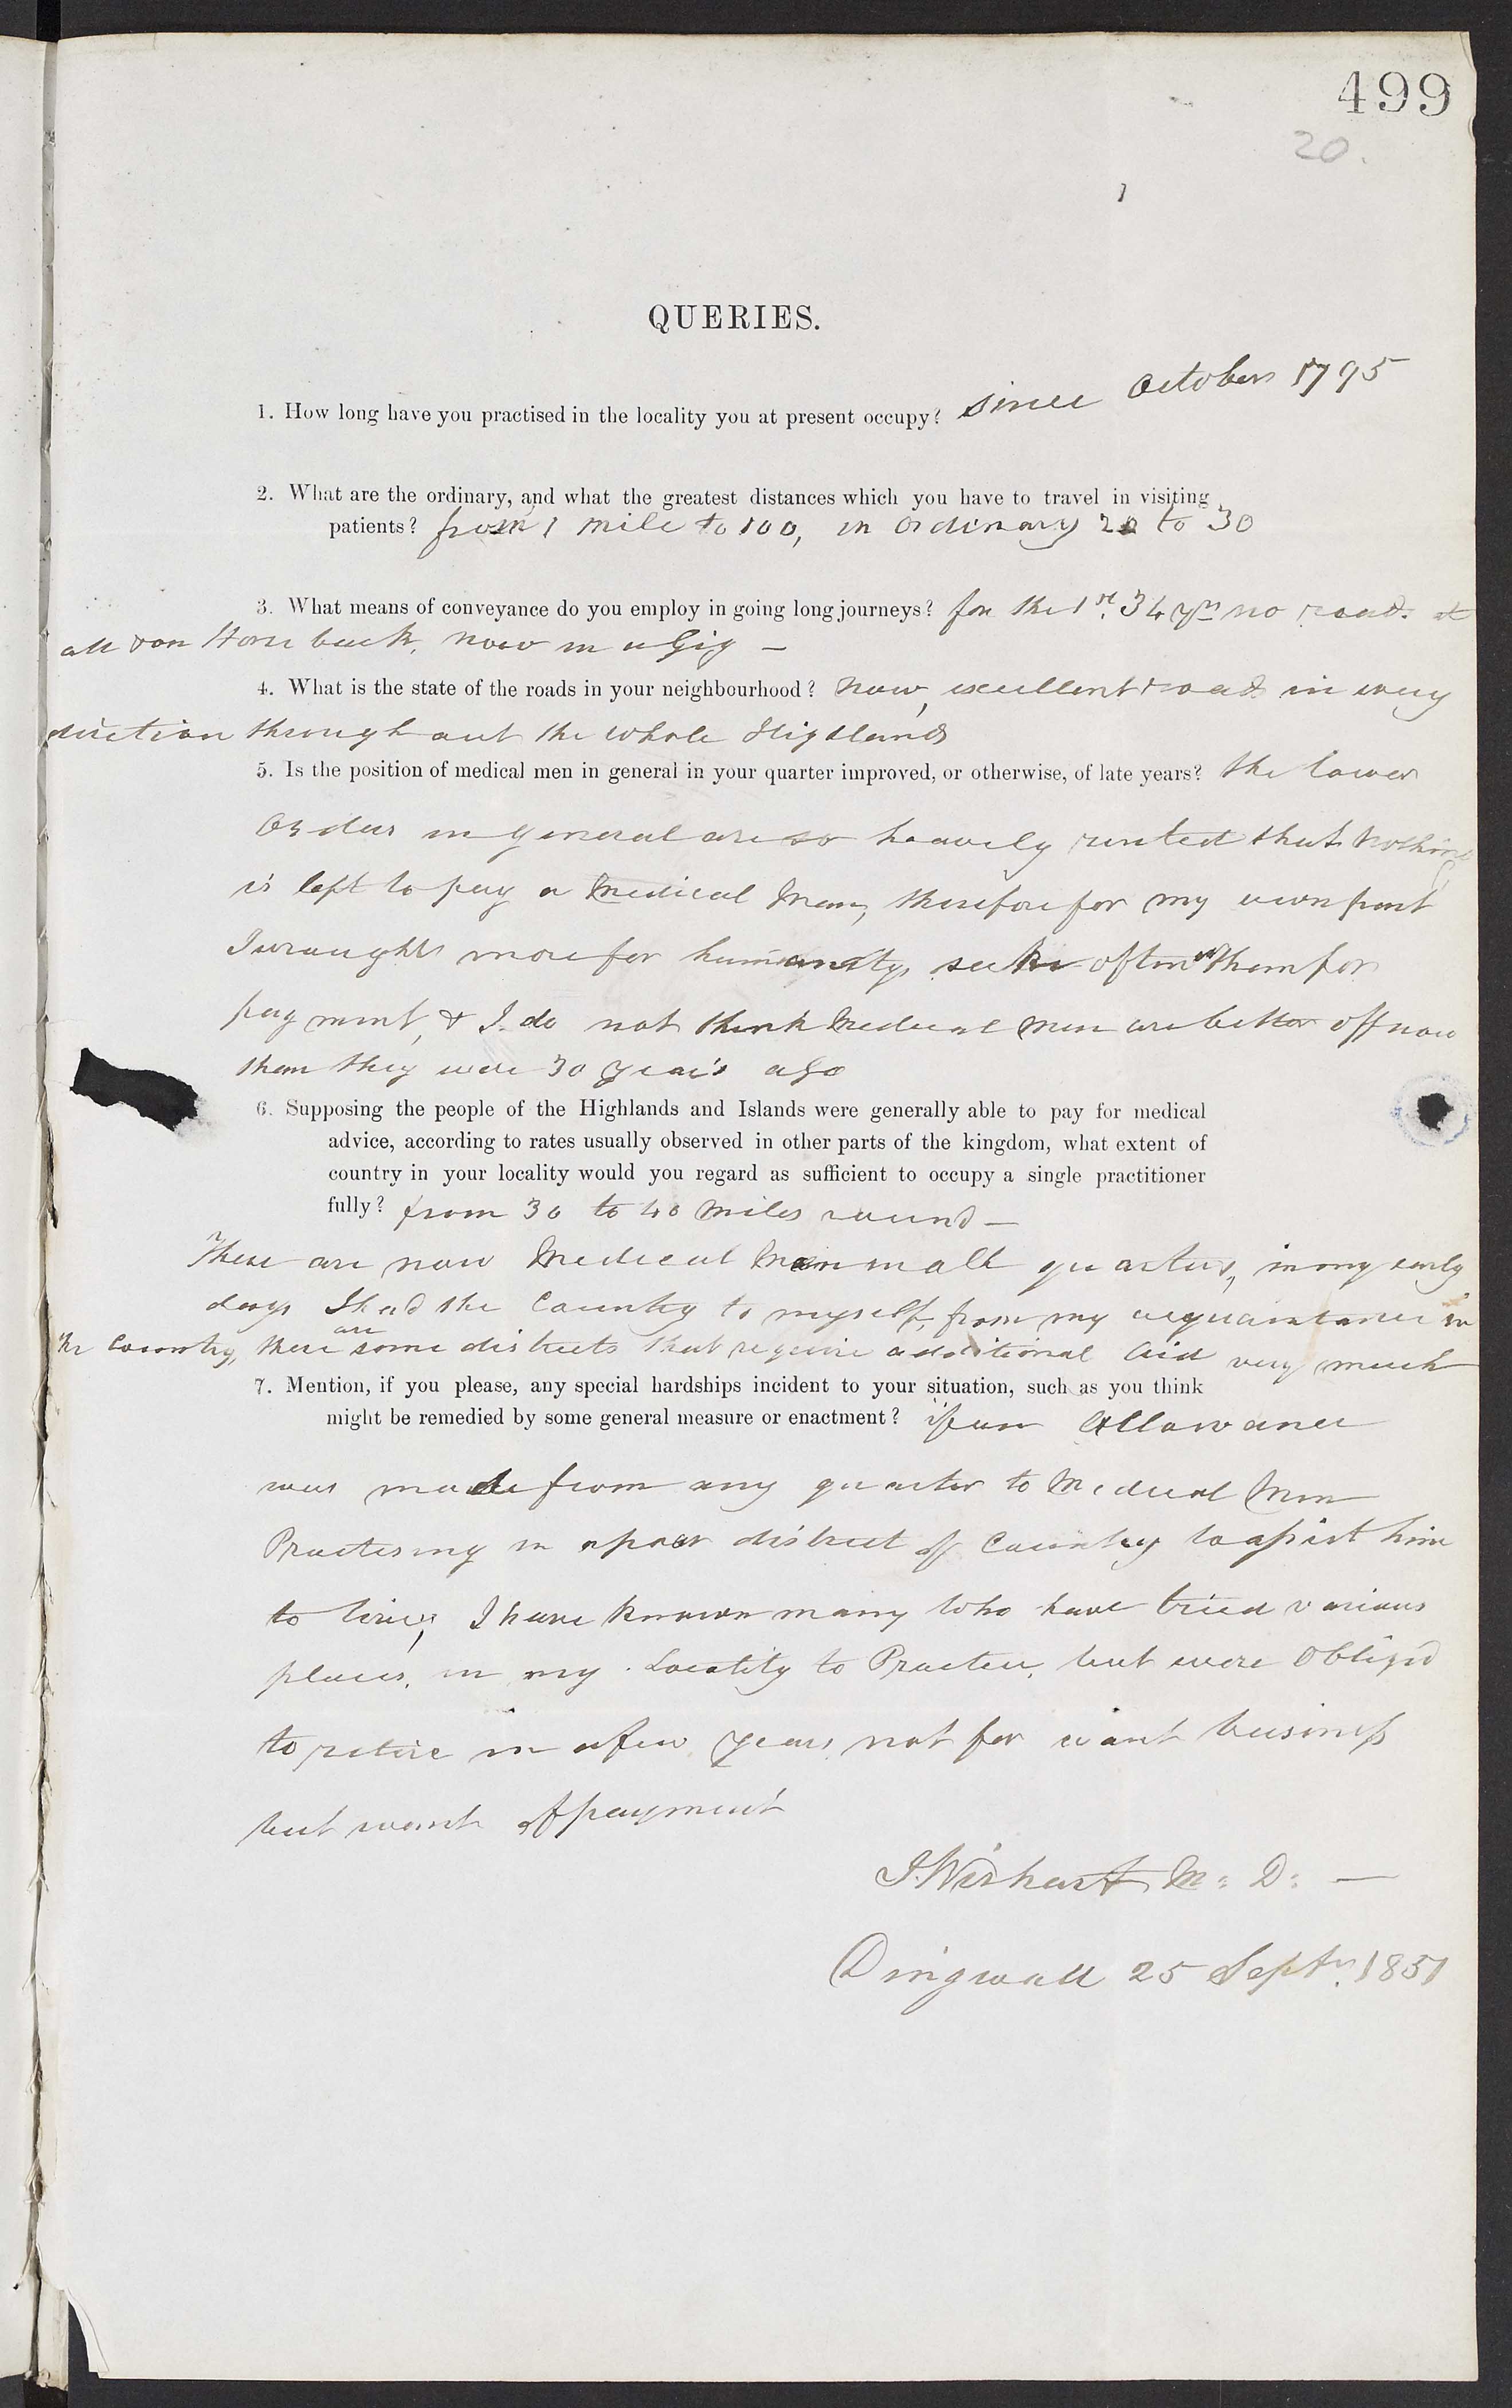 499
20.
QUERIES.
1. How long have you practised in the locality you at present occupy? Since October 1795
2. What are the ordinary, and what the greatest distances which you have to travel in visiting
patients? from 1 mile to 100, in ordinary 20 to 30
3. What means of conveyance do you employ in going long journeys? for the 1st. 34 yrs no roads at
all & on Horse back, now in a Gig —
4. What is the state of the roads in your neighbourhood? Now, excellent roads in every
direction through out the whole Highlands
5. Is the position of medical men in general in your quarter improved, or otherwise, of late years? the lower
Orders in general are so heavily rented that nothing
is left to pay a Medical Man, therefore for my own part
I wrought more for humanity, often than for
payment, & I do not think Medical men are better off now
than they were 30 years ago
6. Supposing the people of the Highlands and Islands were generally able to pay for medical
advice, according to rates usually observed in other parts of the kingdom, what extent of
country in your locality would you regard as sufficient to occupy a single practitioner
fully? from 30 to 40 Miles round —
There are now Medical Men in all quarters, in my early
days I had the Country to myself, from my acquaintance in
the Country, there are some districts that require additional Aid very much
7. Mention, if you please, any special hardships incident to your situation, such as you think
might be remedied by some general measure or enactment? if an Allowance
was made from any quarter to Medical Men
Practising in a poor district of Country to assist him
to live, I have known many who have tried various
places, in my Locality to Practice, but were Obliged
to retire in a few years, not for want business
but want of payment
J. Wishart M: D: —
Dingwall 25 Septr. 1851